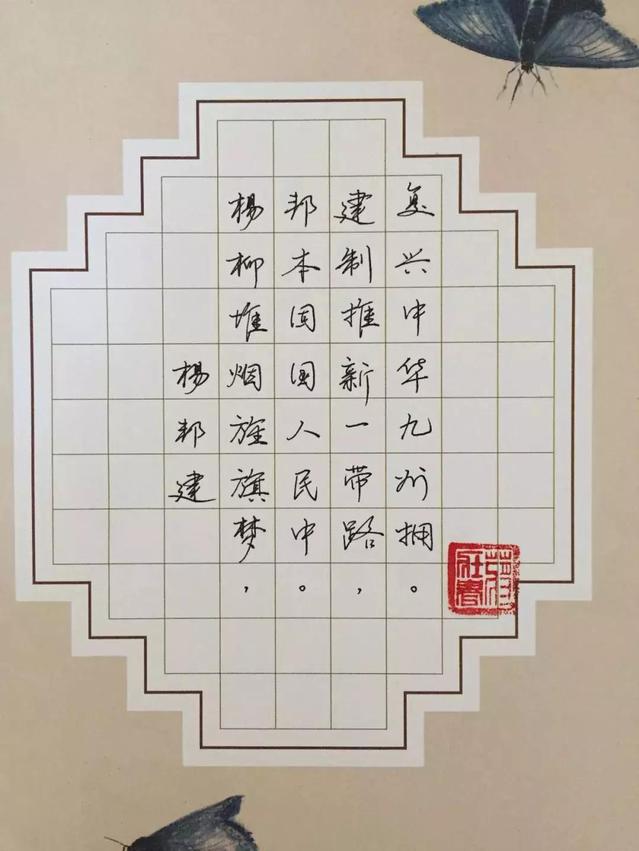 楊邦建
楊柳堆烟旌旗梦，
邦本固国人民中。
建制推新一带路，
复兴中华九州拥。